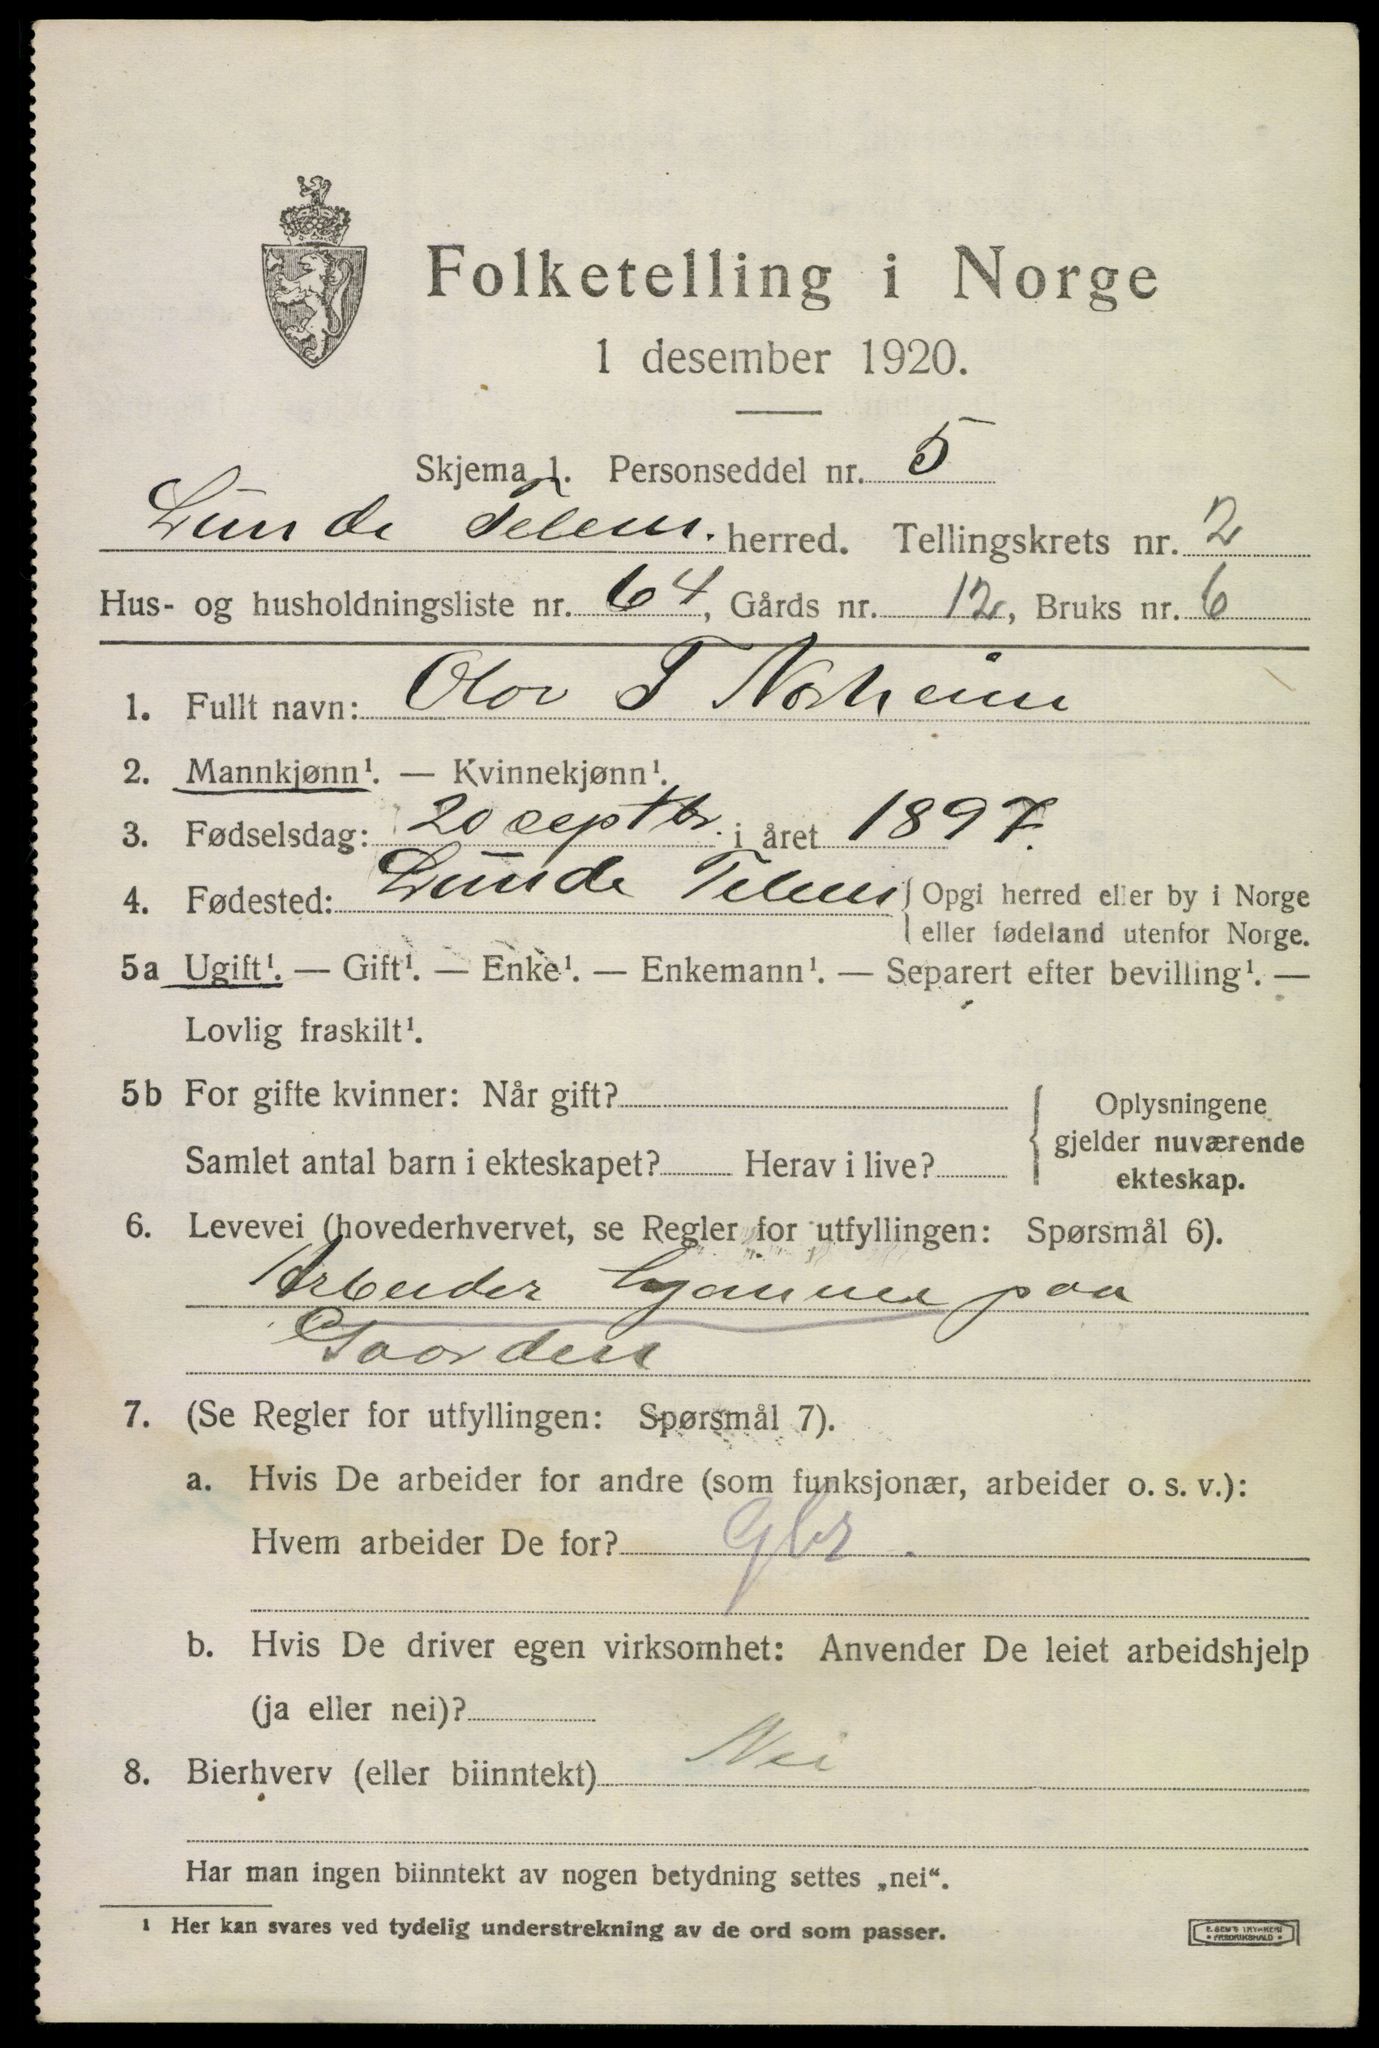 Folketelling i Norge
1 desember 1920.
Skjema 1. Personseddel nr. 5
Lunde Telem. herred. Tellingskrets nr. 2
Hus- og husholdningsliste nr. 64, Gårds nr. 12, Bruks nr. 6
1. Fullt navn: Olav T Norheim
2. Mannkjønn¹. — Kvinnekjønn¹.
3. Fødselsdag: 20 septbr. i året 1897.
4. Fødested: Lunde Telem { Opgi herred eller by i Norge
eller fødeland utenfor Norge.
5a Ugift¹. — Gift¹. — Enke¹. — Enkemann¹. — Separert efter bevilling¹. —
Lovlig fraskilt¹.
5b For gifte kvinner: Når gift?
Samlet antal barn i ekteskapet? Herav i live?
{ Oplysningene
gjelder nuværende
ekteskap.
6. Levevei (hovederhvervet, se Regler for utfyllingen: Spørsmål 6).
Arbeider hjemme paa
Gaarden
7. (Se Regler for utfyllingen: Spørsmål 7).
a. Hvis De arbeider for andre (som funksjonær, arbeider o. s. v.):
Hvem arbeider De for? Gbr.
b. Hvis De driver egen virksomhet: Anvender De leiet arbeidshjelp
(ja eller nei)?
8. Bierhverv (eller biinntekt) Nei
Har man ingen biinntekt av nogen betydning settes „nei“.
¹ Her kan svares ved tydelig understrekning av de ord som passer.
E. SEM'S TRYKKERI
FREDRIKSHALD